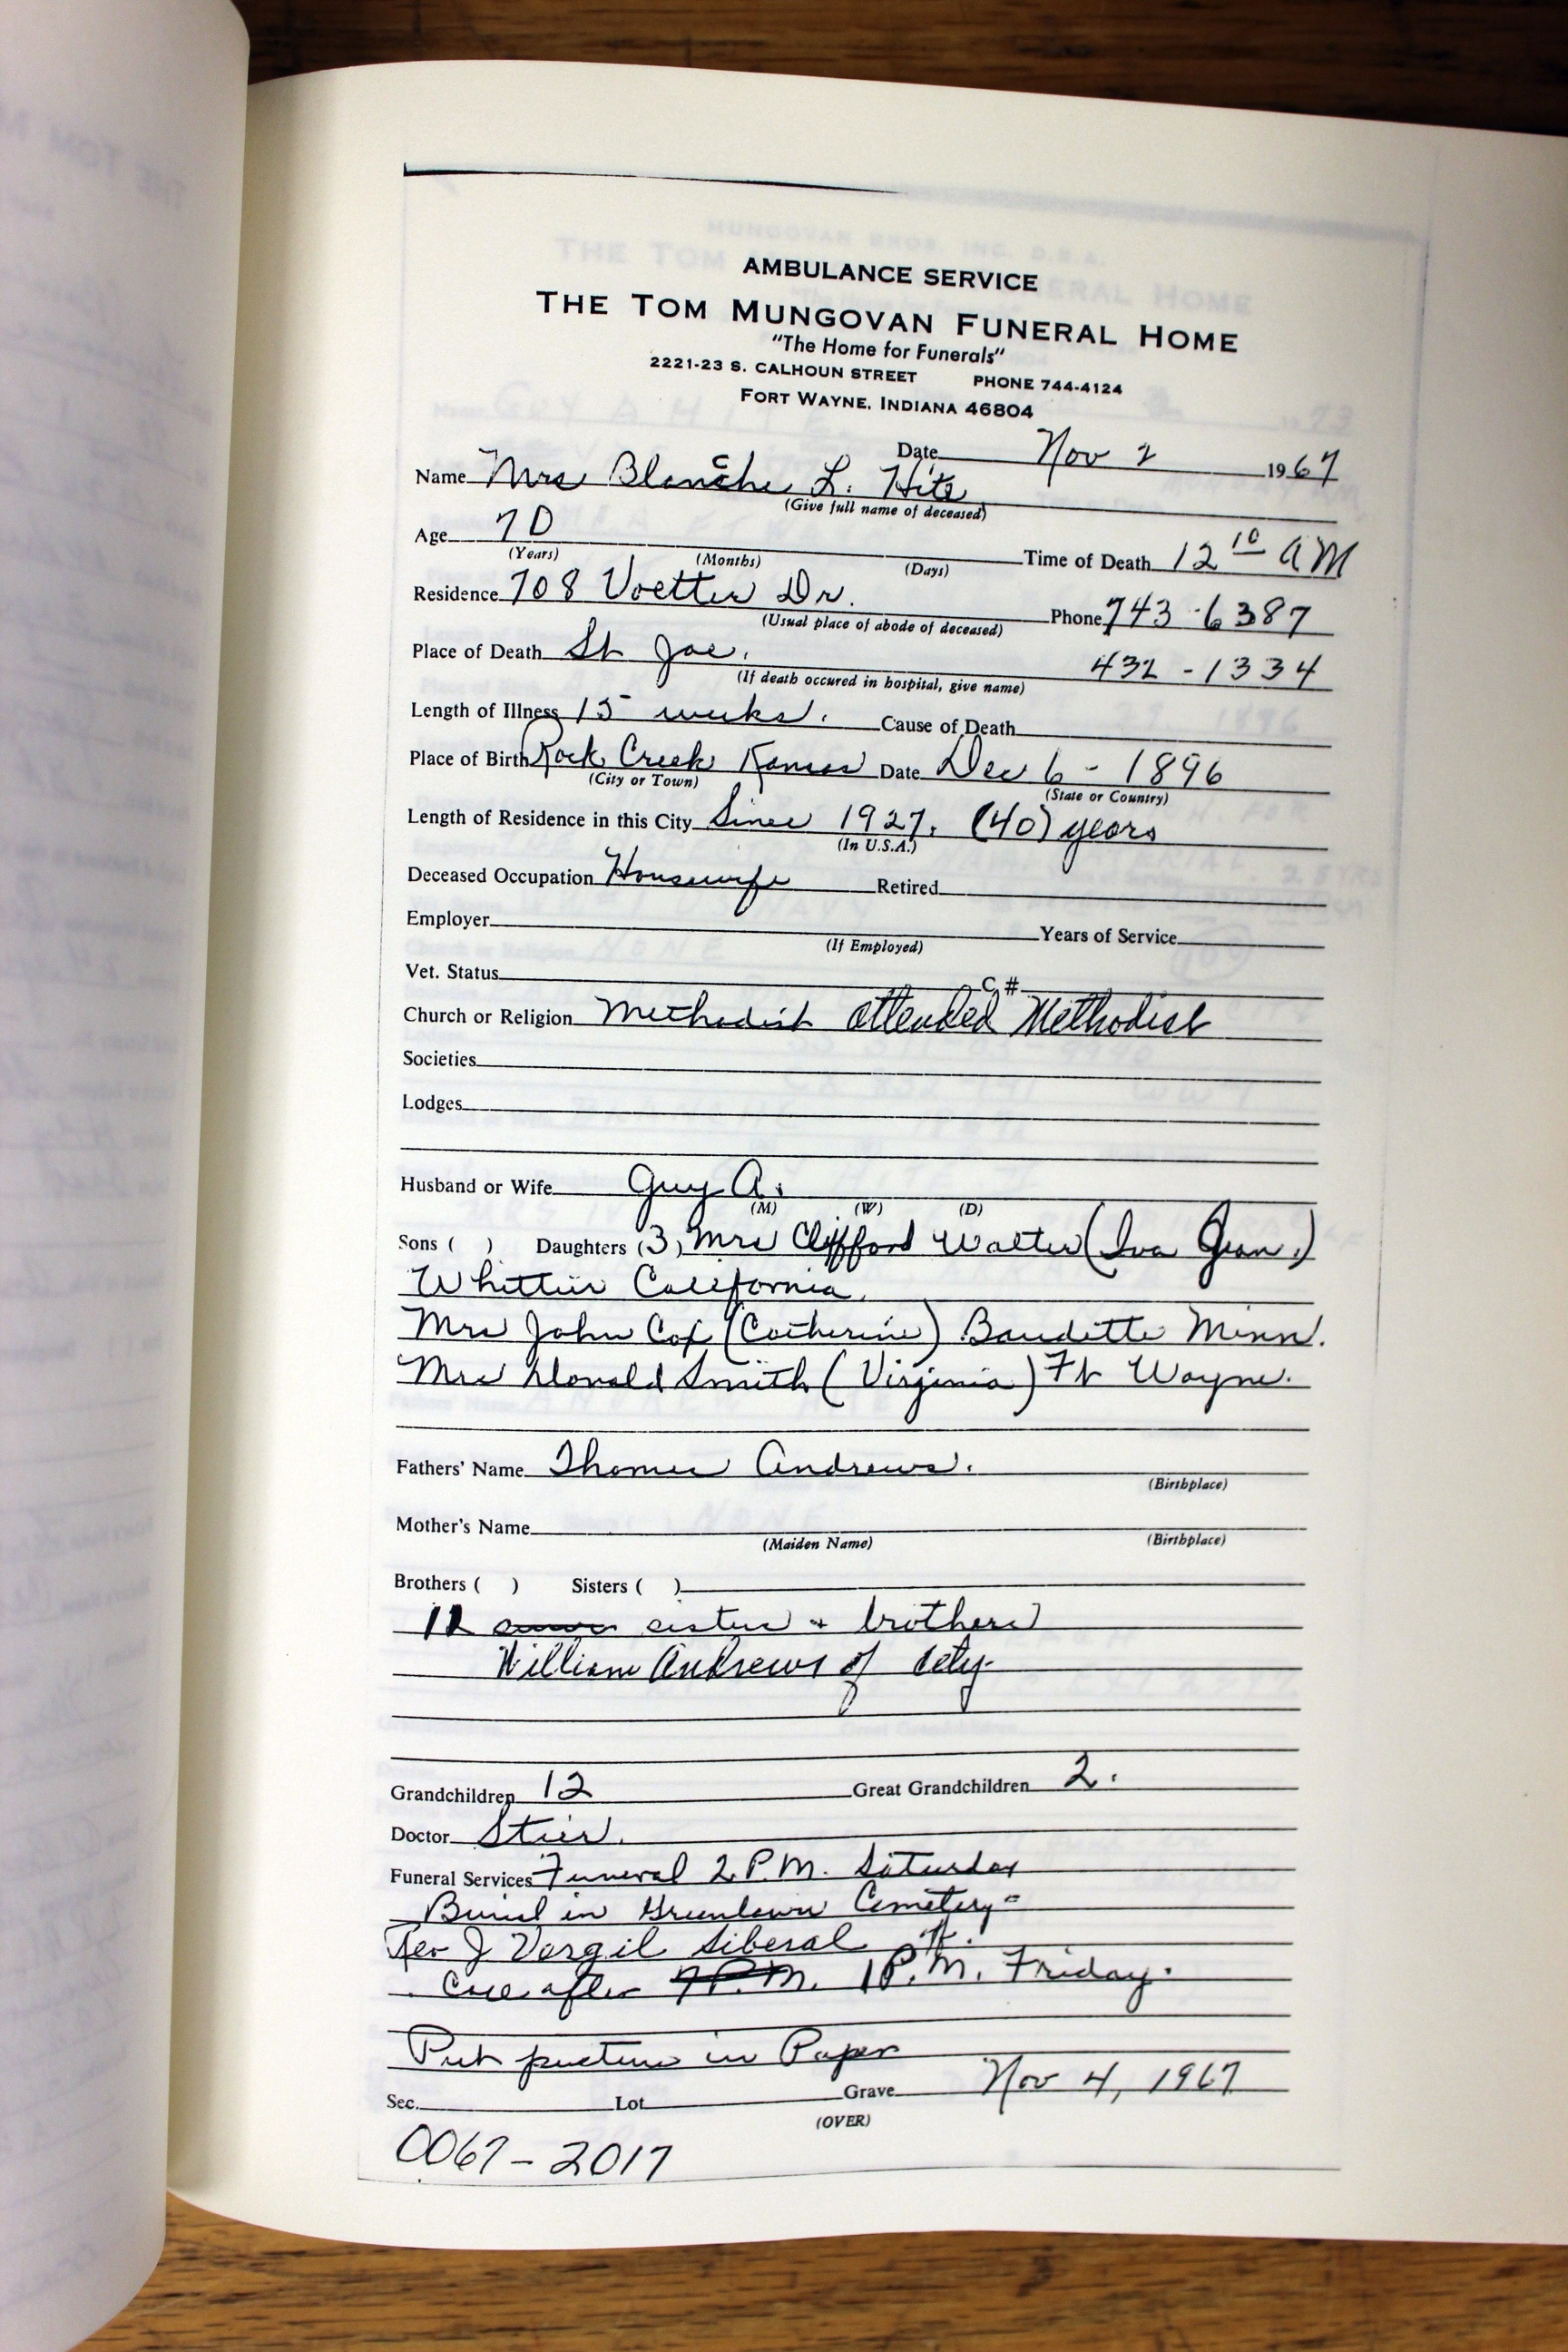 AMBULANCE SERVICE
THE TOM MUNGOVAN FUNERAL HOME
"The Home for Funerals"
2221-23 S. CALHOUN STREET PHONE 744-4124
FORT WAYNE, INDIANA 46804
Date Nov 2 1967
Name Mrs Blanche L. Hite
(Give full name of deceased)
Age 70 Time of Death 12 10 AM
(Years) (Months) (Days)
Residence 708 Voetter Dr. Phone 743-6387
(Usual place of abode of deceased)
Place of Death St Joe. 432-1334
(If death occured in hospital, give name)
Length of Illness 15 weeks. Cause of Death
Place of Birth Rock Creek Kansas Date Dec 6 - 1896
(City or Town) (State or Country)
Length of Residence in this City Since 1927. (40) years
(In U.S.A.)
Deceased Occupation Housewife Retired
Employer Years of Service
(If Employed)
Vet. Status C#
Church or Religion Methodist attended Methodist
Societies
Lodges
Husband or Wife Guy A.
(M) (W) (D)
Sons ( ) Daughters (3) Mrs Clifford Walter (Iva Jean.)
Whittier California.
Mrs John Cox (Catherine) Baudette Minn.
Mrs Donald Smith (Virginia) Ft Wayne.
Fathers' Name Thomas Andrews.
(Birthplace)
Mother's Name
(Maiden Name) (Birthplace)
Brothers ( ) Sisters ( )
12 sisters + brothers
William Andrews of city-
Grandchildren 12 Great Grandchildren 2.
Doctor Stier.
Funeral Services Funeral 2 P.M. Saturday
Burial in Greenlawn Cemetery-
Rev J Vergil Siberal
Call after 7 P.M. 1 P.M. Friday.
Put picture in Paper
Sec. Lot Grave Nov 4, 1967
(OVER)
0067-2017